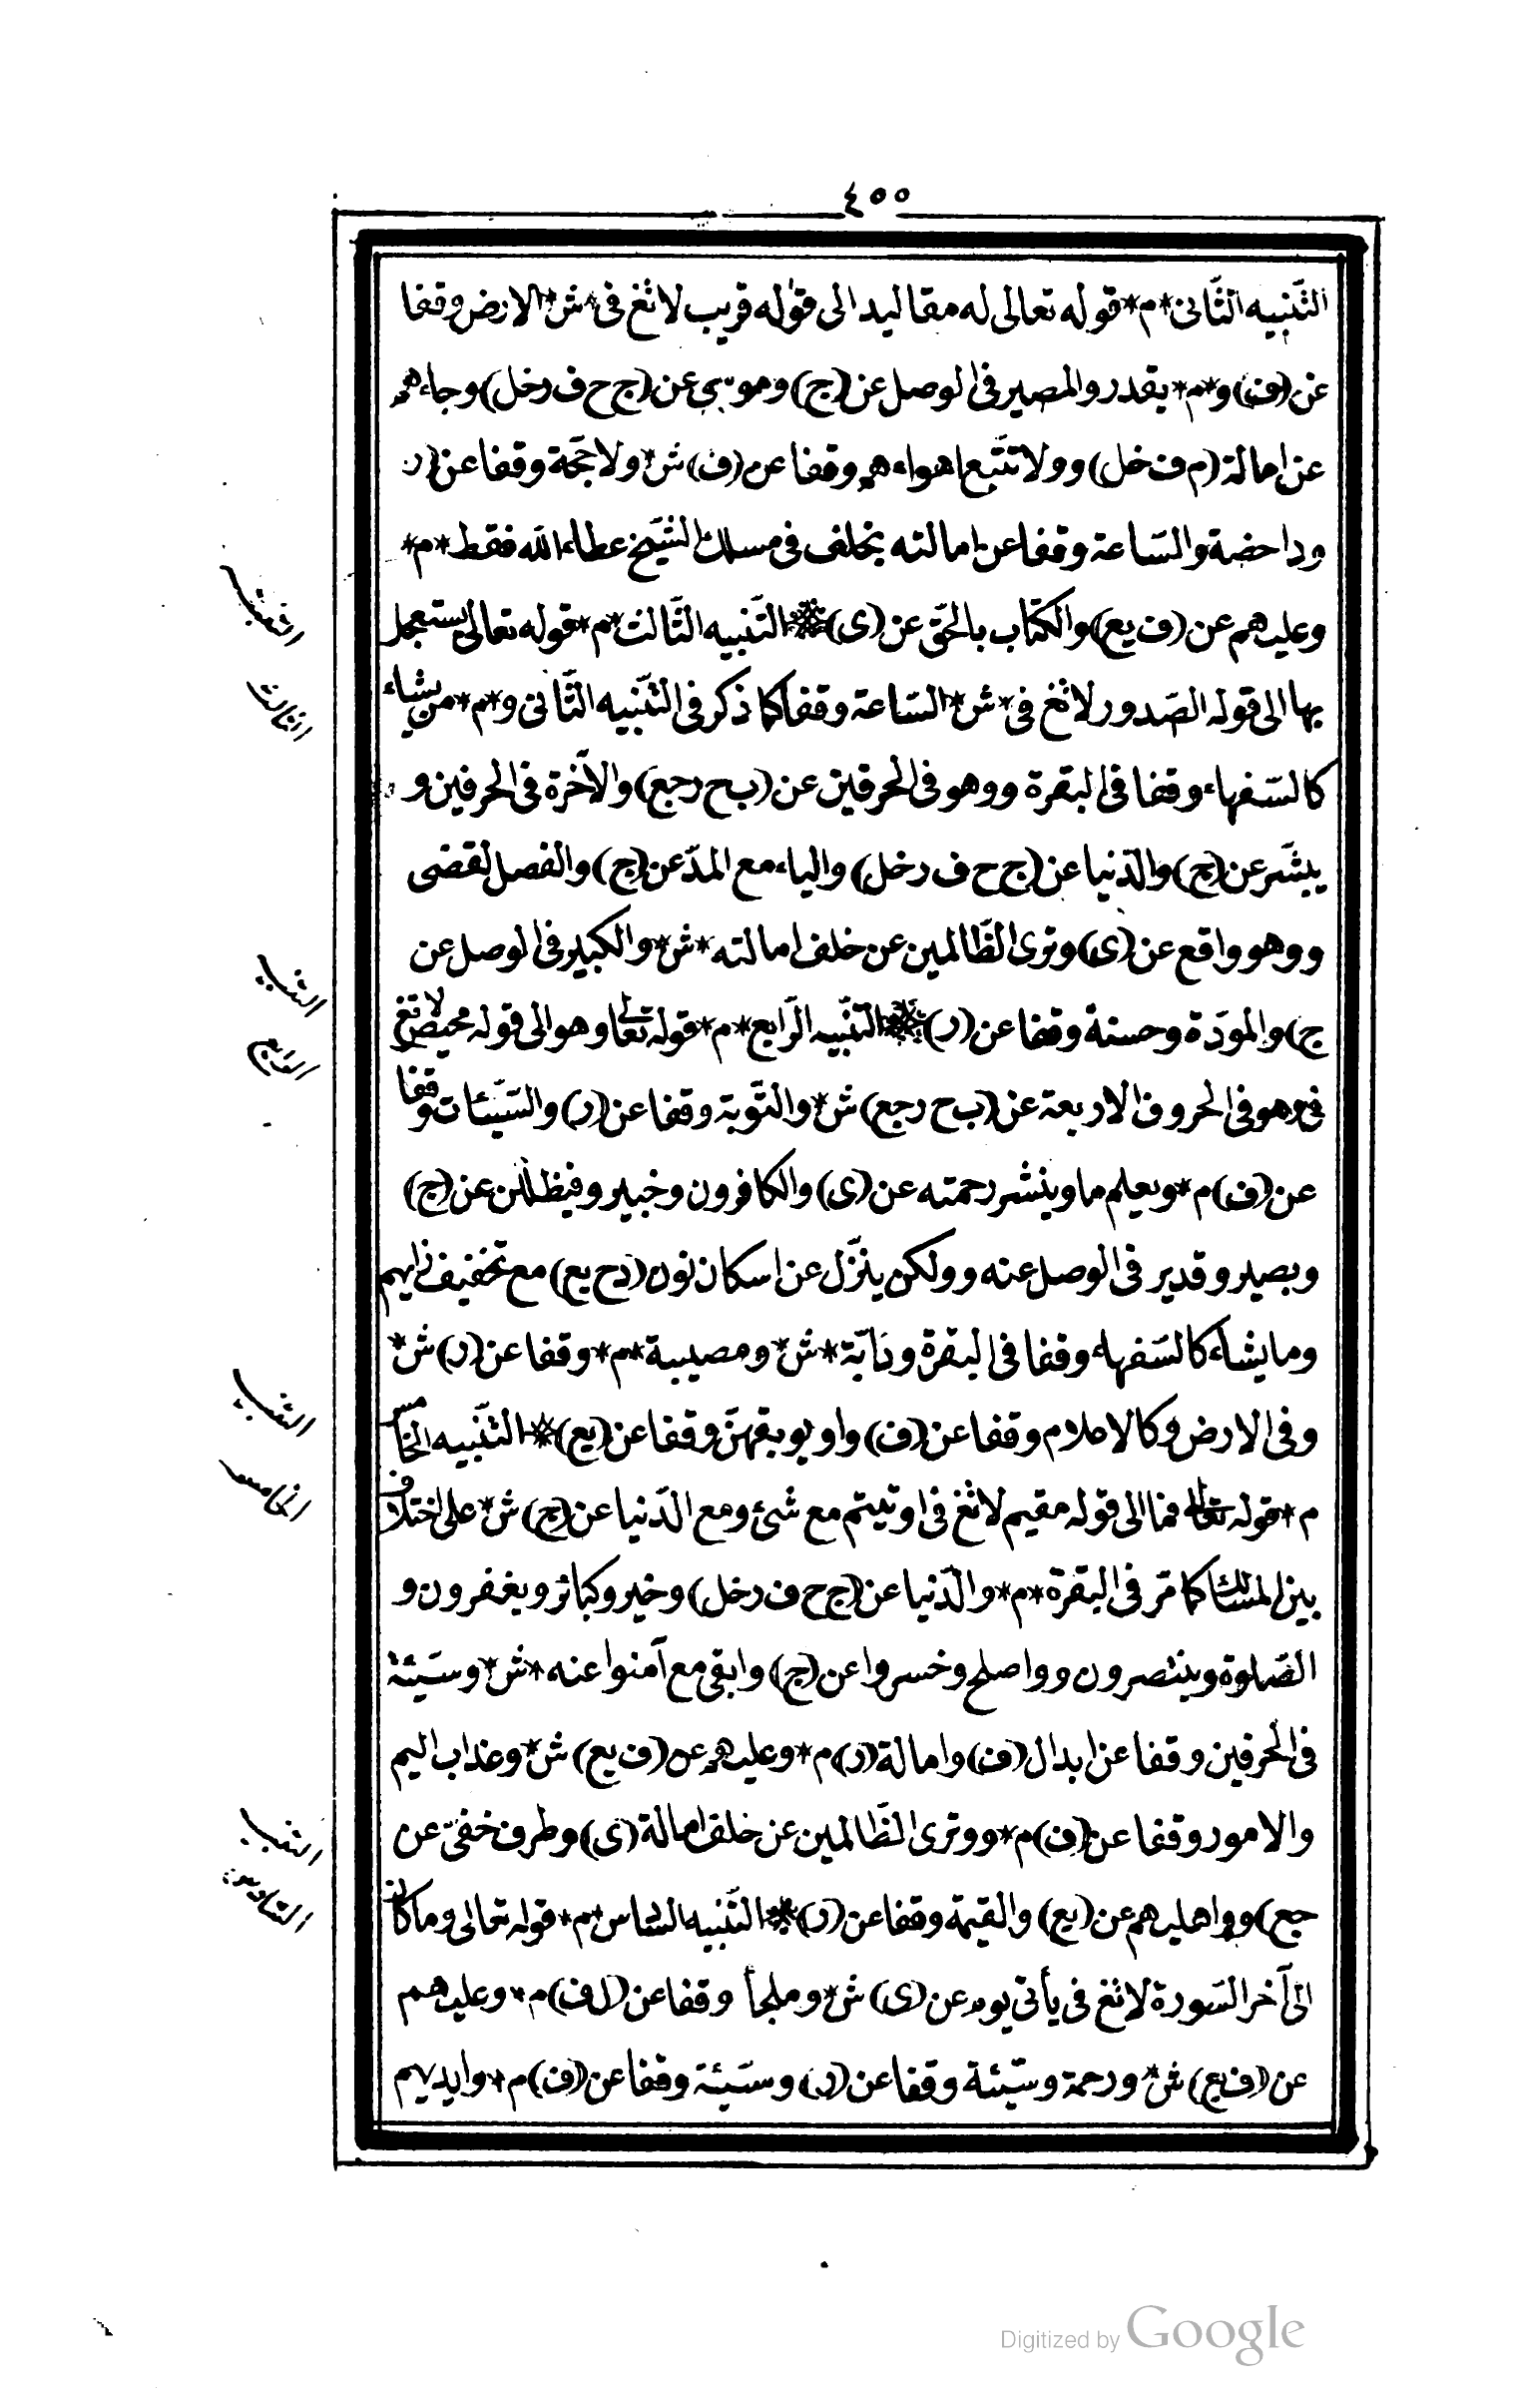 ٤٥٥
التّنبيه الثّانى * م * قوله تعالى له مقاليد الى قوله قريب لا تغ فى * ش * الارض وقفا
عن (ف) و * م * يقدر والمصير فى الوصل عن (ج) وموسى عن (ج ح ف رخل) وجاءهم
عن امالة (م ف خل) وولا تتّبع اهواءهم وقفا عن (ف) ش * ولا حجّة وقفا عن (ر
وداحضة والسّاعة وقفا عن امالته بخلف فى مسلك الشّيخ عطاءالله فقط * م *
وعليهم عن (ف يع) والكتاب بالحقّ عن (ى) * التّنبيه الثّالث * م * قوله تعالى يستعجل
بها الى قوله الصّدور لا تغ فى * ش * السّاعة وقفا كما ذكر فى التّنبيه الثّانى و * م * من يشاء
كالسّفهاء وقفا فى البقرة ووهو فى الحرفين عن (ب ح رجع) والآخرة فى الحرفين و
يبشّر عن (ج) والدّنيا عن (ج ح ف رخل) والياء مع المدّ عن (ج) والفصل لقضى
ووهو واقع عن (ى) وترى الظّالمين عن خلف امالته * ش * والكبير فى الوصل عن
ج) والمودّة وحسنة وقفا عن (ر) * التّنبيه الرّابع * م * قوله تعالى وهو الى قوله محيص لا تغ
فى وهو فى الحروف الاربعة عن (ب ح رجع) ش * والتّوبة وقفا عن (ر) والسّيّئات وقفا
عن (ف) م * ويعلم ما وينشر رحمته عن (ى) والكافرون وخبير وفيظللن عن (ج)
وبصير وقدير فى الوصل عنه وولكن ينزّل عن اسكان نون (دح يع) مع تخفيف زايهم
وما يشاء كالسّفهاء وقفا فى البقرة ودابّة * ش * ومصيبة * م * وقفا عن (ر) ش *
وفى الارض وكالاعلام وقفا عن (ف) واو يوبقهنّ وقفا عن (يع) * التّنبيه الخامس
م * قوله تعالى فما الى قوله مقيم لا تغ فى اوتيتم مع شئ ومع الدّنيا عن (ج) ش * على اختلاف
بين المسالك كما مرّ فى البقرة * م * والدّنيا عن (ج ح ف رخل) وخير وكبائر ويغفرون و
الصّلوة وينتصرون وواصلح وخسروا عن (ج) وابقى مع آمنوا عنه * ش * وسيّئة
فى الحرفين وقفا عن ابدال (ف) وامالة (ر) م * وعليهم عن (ف يع) ش * وعذاب اليم
والامور وقفا عن (ف) م * ووترى الظّالمين عن خلف امالة (ى) وطرف خفىّ عن
جع) وواهليهم عن (يع) والقيمة وقفا عن (ر) * التّنبيه السّادس م * قوله تعالى وما كان
الى آخر السّورة لا تغ فى يأتى يوم عن (ى) ش * وملجأ وقفا عن (ل ف) م * وعليهم
عن (ف يع) ش * ورحمة وسيّئة وقفا عن (ر) وسيّئة وقفا عن (ف) م * وايديهم
التنبيه
الثالث
التنبيه
الرابع
التنبيه
الخامس
التنبيه
السادس
Digitized by Google